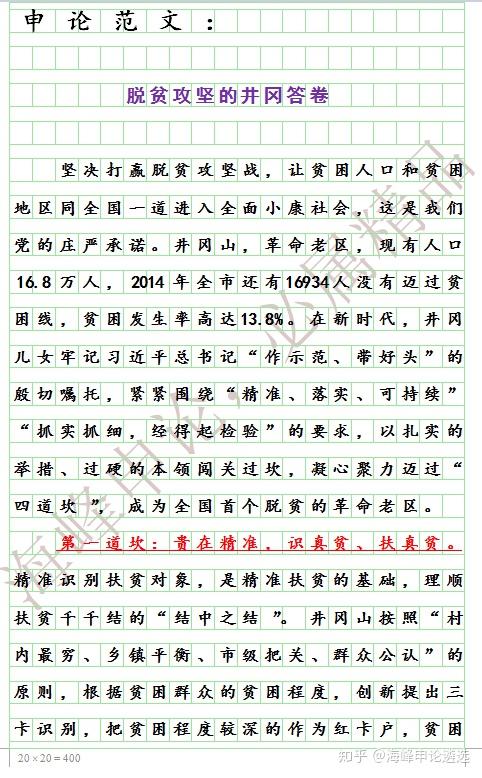 申论范文：
脱贫攻坚的井冈答卷
坚决打赢脱贫攻坚战，让贫困人口和贫困
地区同全国一道进入全面小康社会，这是我们
党的庄严承诺。井冈山，革命老区，现有人口
16.8万人，2014年全市还有16934人没有迈过贫
困线，贫困发生率高达13.8%。在新时代，井冈
儿女牢记习近平总书记“作示范、带好头”的
殷切嘱托，紧紧围绕“精准、落实、可持续”
“抓实抓细，经得起检验”的要求，以扎实的
举措、过硬的本领闯关过坎，凝心聚力迈过“
四道坎”，成为全国首个脱贫的革命老区。
第一道坎：贵在精准，识真贫、扶真贫。
精准识别扶贫对象，是精准扶贫的基础，理顺
扶贫千千结的“结中之结”。井冈山按照“村
内最穷、乡镇平衡、市级把关、群众公认”的
原则，根据贫困群众的贫困程度，创新提出三
卡识别，把贫困程度较深的作为红卡户，贫困
20×20=400
知乎 @海峰申论遴选
海峰申论，必属精品